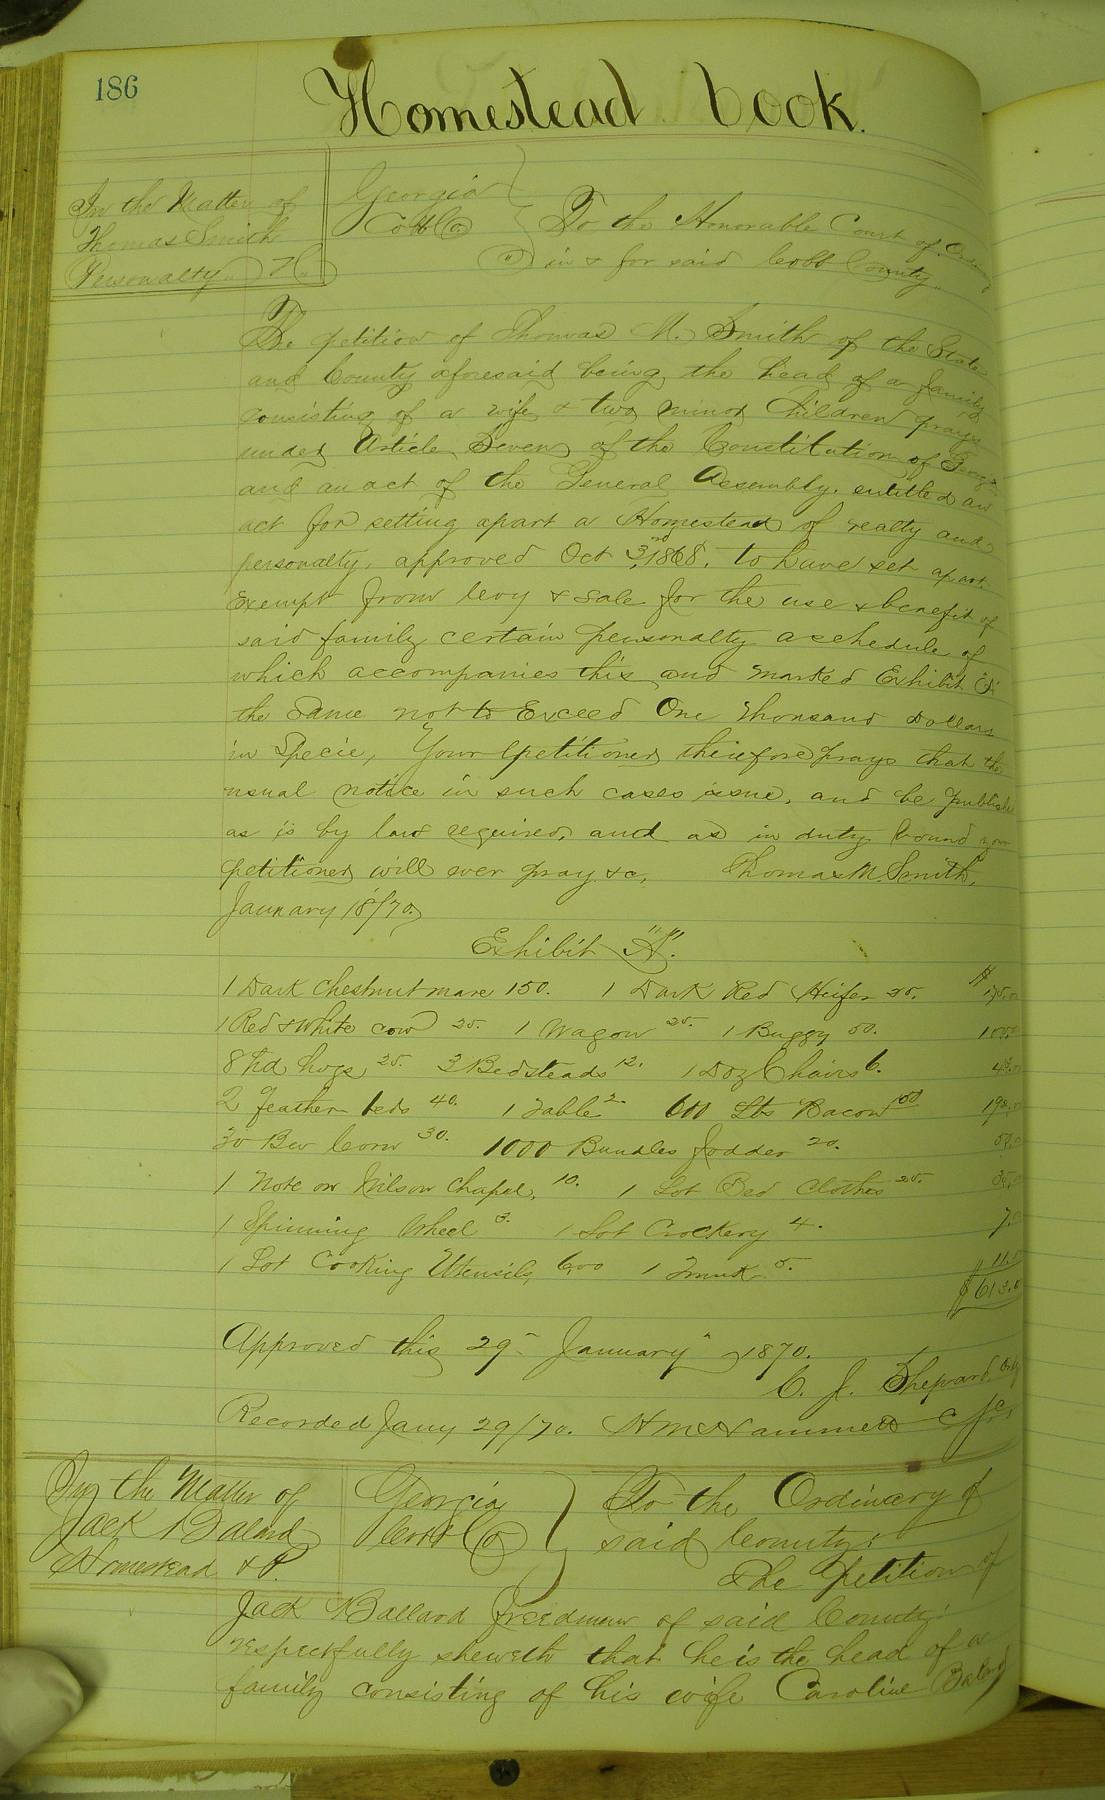 186
Homestead Book.
In the Matter of
Thomas Smith
Personalty
Georgia
Cobb Co
To the Honorable Court of
in & for said Cobb County
The petition of Thomas M. Smith of the State
and County aforesaid being the head of a family
consisting of a wife & two minor Children prays
under Article Seven of the Constitution of Georgia
and an act of the General Assembly. entitled an
act for setting apart a Homestead of realty and
personalty, approved Oct 3rd, 1868. to have set apart
Exempt from levy & sale for the use & benefit of
said family certain personalty a schedule of
which accompanies this, and marked Exhibit "A"
the Same not to Exceed One Thousand Dollars
in Specie, Your Petitioner therefore prays that the
usual notice in such cases issue, and be publish
as is by law required, and as in duty bound your
petitioner will ever pray &c, Thomas M. Smith,
January 18/70.
Exhibit "A".
1 Dark Chestnut mare 150. 1 Dark Red Heifer 25. $ 175.00
1 Red & White cow 25. 1 Wagon 25. 1 Buggy 50. 100.00
8 hd hogs 25. 3 Bedsteads 12. 1 Doz Chairs 6. 43.00
2 Feather beds 40. 1 Table 2. 600 Lbs Bacon
30 Bu Corn 30. 1000 Bundles fodder 20. 50.00
1 Note on Wilson Chapel, 10. 1 Lot Bed Clothes 25. 35.00
1 Spinning Wheel 3. 1 Lot Crockery 4. 7.00
1 Lot Cooking Utensils, 6.00 1 Trunk 5. 11.00
$613.0
Approved this 29" January 1870.
C. J. Shepard Ordy
Recorded Jany 29/70. H M Hammett C
In the Matter of
Jack Balard
Homestead & P.
Georgia
Cobb Co
To the Ordinary of
said County:
The Petition of
Jack Ballard freedman of said County:
respectfully sheweth that he is the head of a
family consisting of his wife Caroline Balard